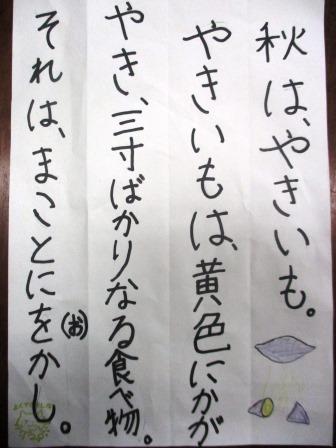 秋は、やきいも。
やきいもは、黄色にかが
やき、三寸ばかりなる食べ物。
それは、まことにをかし。
(お)